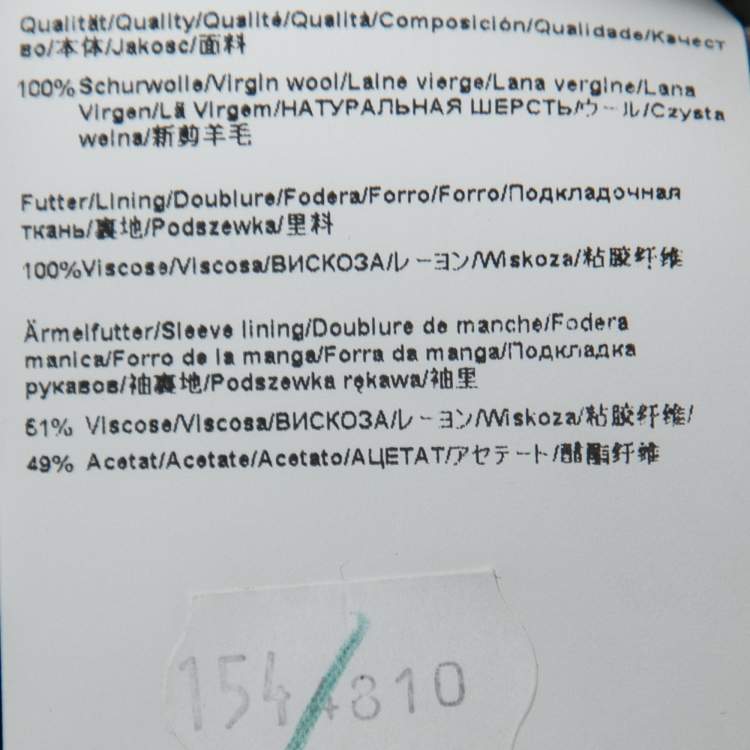 Qualität/Quality/Qualité/Qualità/Composición/Qualidade/Качест
во/本体/Jakosc/面料
100% Schurwolle/Virgin wool/Laine vierge/Lana vergine/Lana
Virgen/Lã Virgem/НАТУРАЛЬНАЯ ШЕРСТЬ/ウール/Czysta
welna/新剪羊毛
Futter/Lining/Doublure/Fodera/Forro/Forro/Подкладочная
ткань/裏地/Podszewka/里料
100%Viscose/Viscosa/ВИСКОЗА/レーヨン/Wiskoza/粘胶纤维
Ärmelfutter/Sleeve lining/Doublure de manche/Fodera
manica/Forro de la manga/Forra da manga/Подкладка
рукавов/袖裏地/Podszewka rękawa/袖里
51% Viscose/Viscosa/ВИСКОЗА/レーヨン/Wiskoza/粘胶纤维/
49% Acetat/Acetate/Acetato/АЦЕТАТ/アセテート/醋酯纤维
154 4810